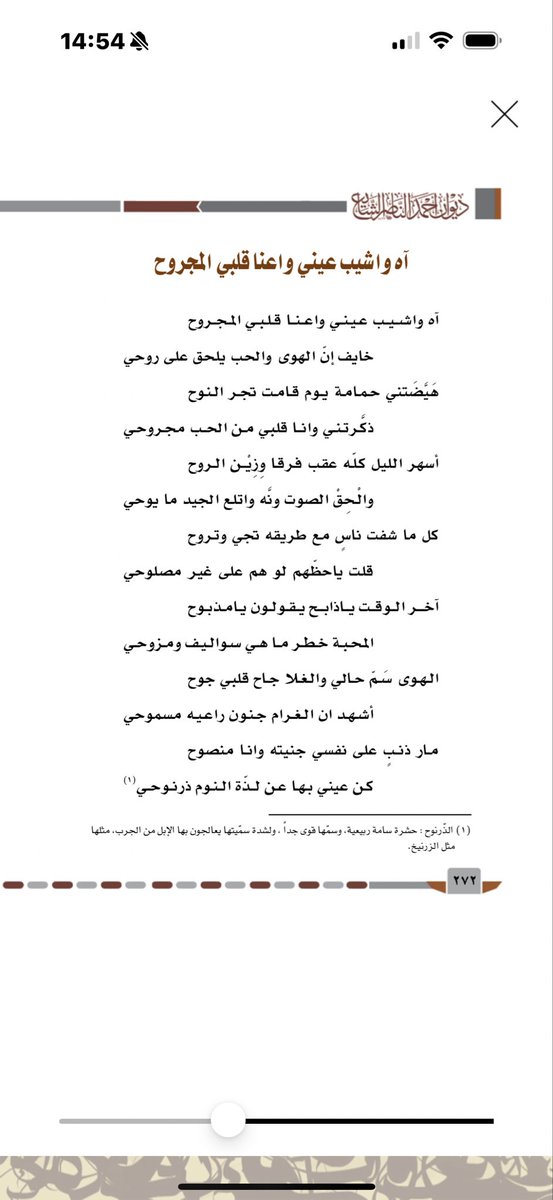 14:54
ديوان أحمد الناصر الشايع
آه واشيب عيني واعنا قلبي المجروح
آه واشيب عيني واعنا قلبي المجروح
خايف إنّ الهوى والحب يلحق على روحي
هَيَّضَتني حمامة يوم قامت تجر النوح
ذكَّرتني وانا قلبي من الحب مجروحي
أسهر الليل كلّه عقب فرقا وِزِيْن الروح
والْحِقْ الصوت ونَّه واتلع الجيد ما يوحي
كل ما شفت ناسٍ مع طريقه تجي وتروح
قلت ياحظّهم لو هم على غير مصلوحي
آخر الوقت ياذابح يقولون يامذبوح
المحبة خطر ما هي سواليف ومزوحي
الهوى سَمّ حالي والغلا جاح قلبي جوح
أشهد ان الغرام جنون راعيه مسموحي
مار ذنبٍ على نفسي جنيته وانا منصوح
كن عيني بها عن لذّة النوم ذرنوحي(١)
(١) الذّرنوح : حشرة سامة ربيعية، وسمّها قوى جداً ، ولشدة سمّيتها يعالجون بها الإبل من الجرب، مثلها
مثل الزرنيخ.
٢٧٢